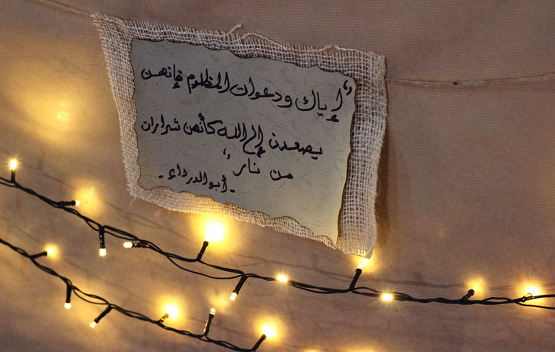 "إياك ودعوات المظلوم فإنهن
يصعدن إلى الله كأنهن شرارات
من نار"
- أبو الدرداء -